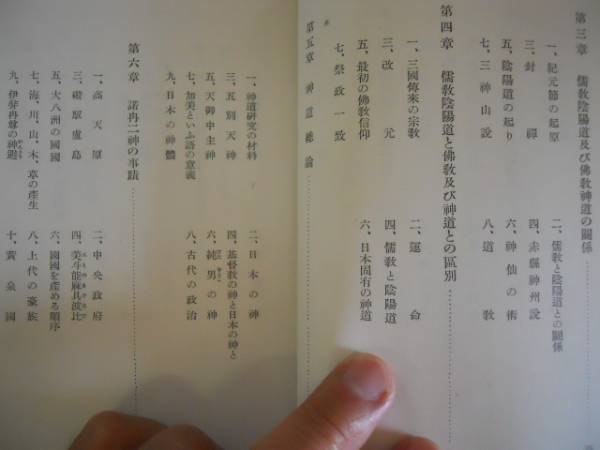 第三章　儒敎陰陽道及び佛敎神道の關係
一、紀元節の起原
二、儒敎と陰陽道との關係
三、封禪
四、赤縣神州說
五、陰陽道の起り
六、神仙の術
七、三神山說
八、道敎
第四章　儒敎陰陽道と佛敎及び神道との區別
一、三國傳來の宗敎
二、運命
三、改元
四、儒敎と陰陽道
五、最初の佛敎信仰
六、日本固有の神道
七、祭政一致
第五章　神道總論
一、神道硏究の材料
二、日本の神
三、五別天神
四、基督敎の神と日本の神と
五、天御中主神
六、純男の神
七、加美といふ語の意義
八、古代の政治
九、日本の神體
第六章　諾冉二神の事蹟
一、高天原
二、中央政府
三、磤馭盧島
四、美斗能麻具波比
五、大八洲の國國
六、國國を產める順序
七、海、川、山、木、草の產生
八、上代の豪族
九、伊弉冉尊の神避
十、黃泉國